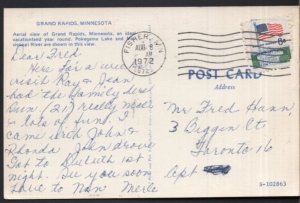 GRAND RAPIDS, MINNESOTA
Aerial view of Grand Rapids, Minnesota, an ideal
vacationland year round. Pokegama Lake and
River are shown in the distance.
FISHER, MN
AUG 8
1972
6c
POST CARD
Address
Dear Fred
Here for a week
visit Ray & Jean
had the family here
Sun. (21) really nice
- lots of fun. I
came with John &
Rhonda John drove
Sat to Duluth 1st
night. See you soon
Love to Nan Merle
Mr Fred Hann,
3 Biggin Ct
Toronto 16
Apt
S-102863